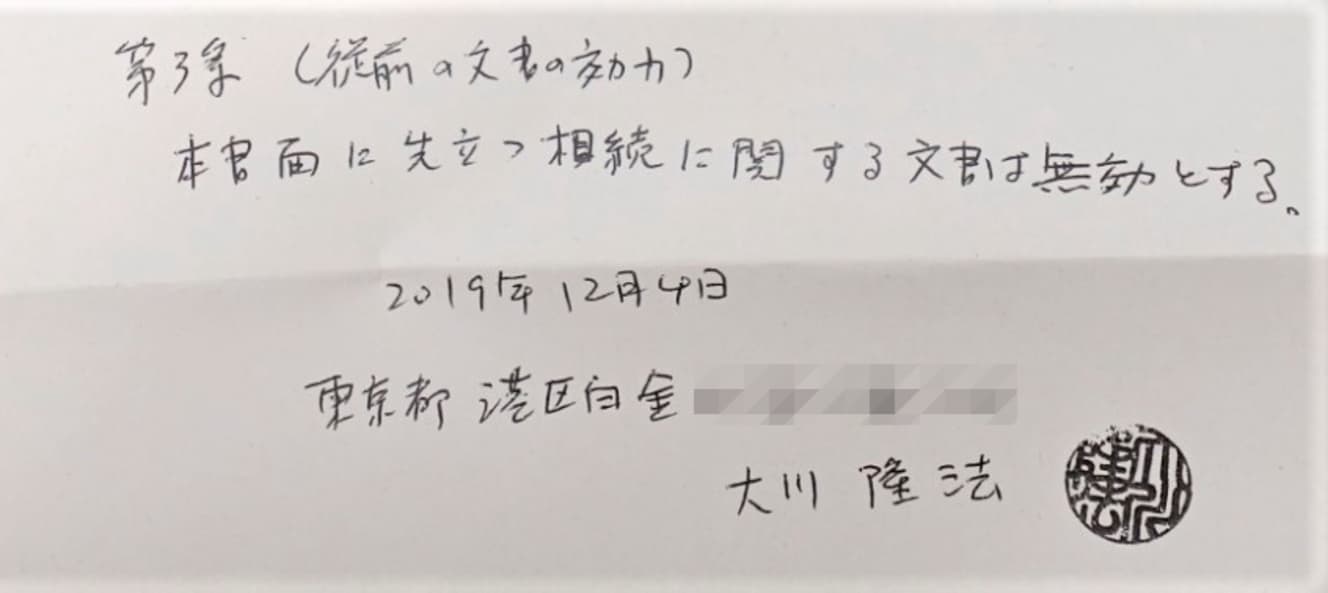 第3条（従前の文書の効力）
本書面に先立つ相続に関する文書は無効とする。
2019年12月4日
東京都港区白金
大川隆法